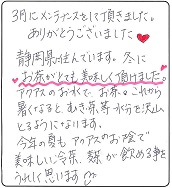 3月にメンテナンスをして頂きました。
ありがとうございました
静岡県に住んでいます。冬に
お茶がとても美味しく頂けました。
アクアスのお水で、お茶。これから
暑くなると むぎ茶等 水分を沢山
とるようになります。
今年の夏も アクアスのお陰で
美味しい冷茶、類が飲める事を
うれしく思います